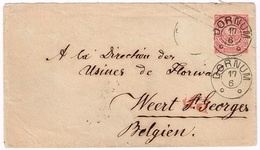 DORNUM
17
6
A la Direction des
Usines de Florival
DORNUM
17
6
Weert St. Georges
Belgien.